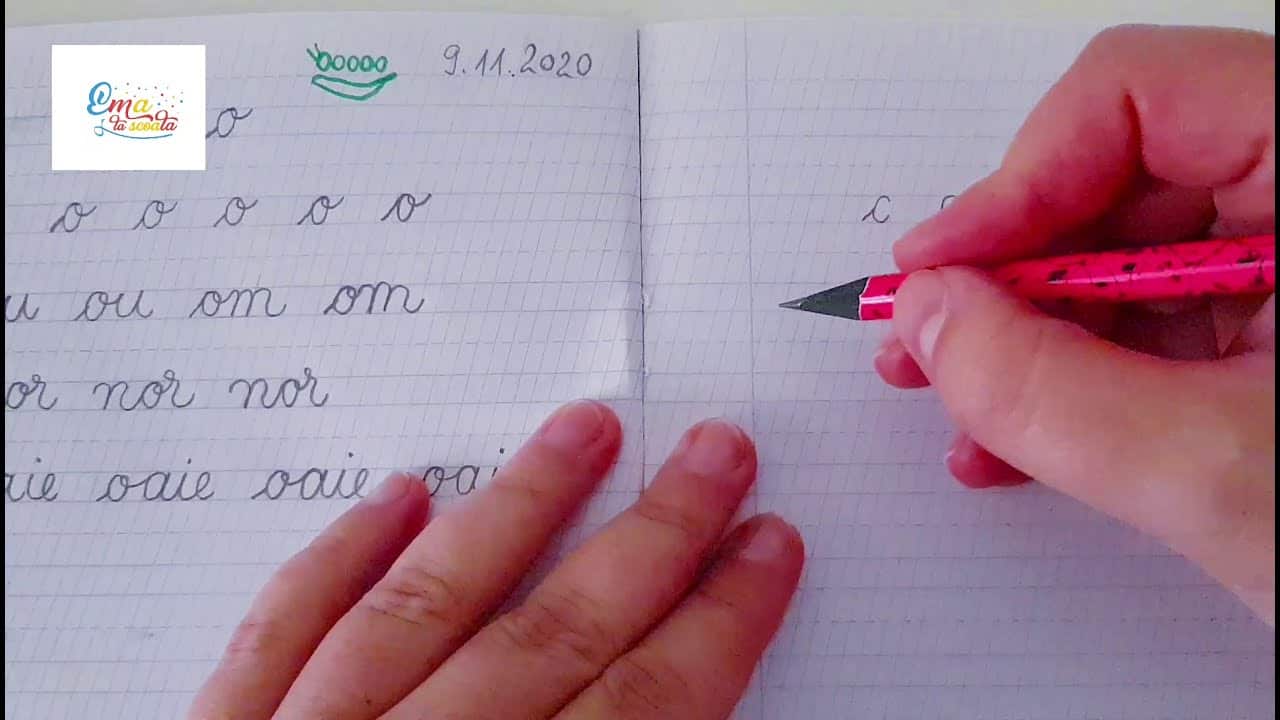 Ema
la scoala
9.11.2020
o
o o o o o
u ou om om
or nor nor
aie oaie oaie oai
c